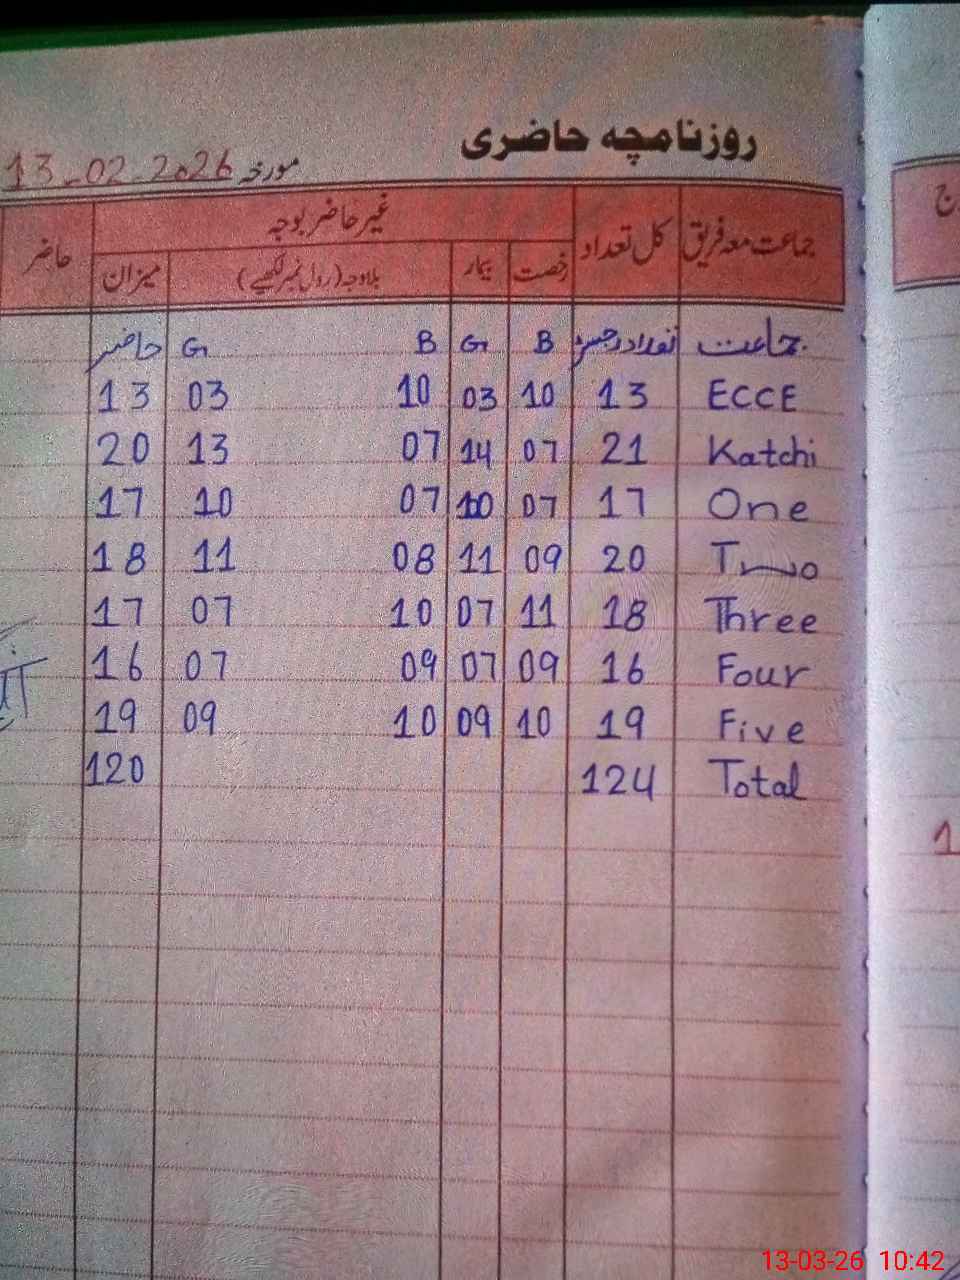 روزنامچہ حاضری
مورخہ 13-02-2026
جماعت معہ فریق کل تعداد غیر حاضر بوجہ حاضر
رخصت بیمار بلاوجہ (رول نمبر لکھیے) میزان
جماعت تعداد B G B G حاضر
ECCE 13 10 03 10 03 13
Katchi 21 07 14 07 13 20
One 17 07 10 07 10 17
Two 20 09 11 08 11 18
Three 18 11 07 10 07 17
Four 16 09 07 09 07 16
Five 19 10 09 10 09 19
Total 124 120
13-03-26 10:42